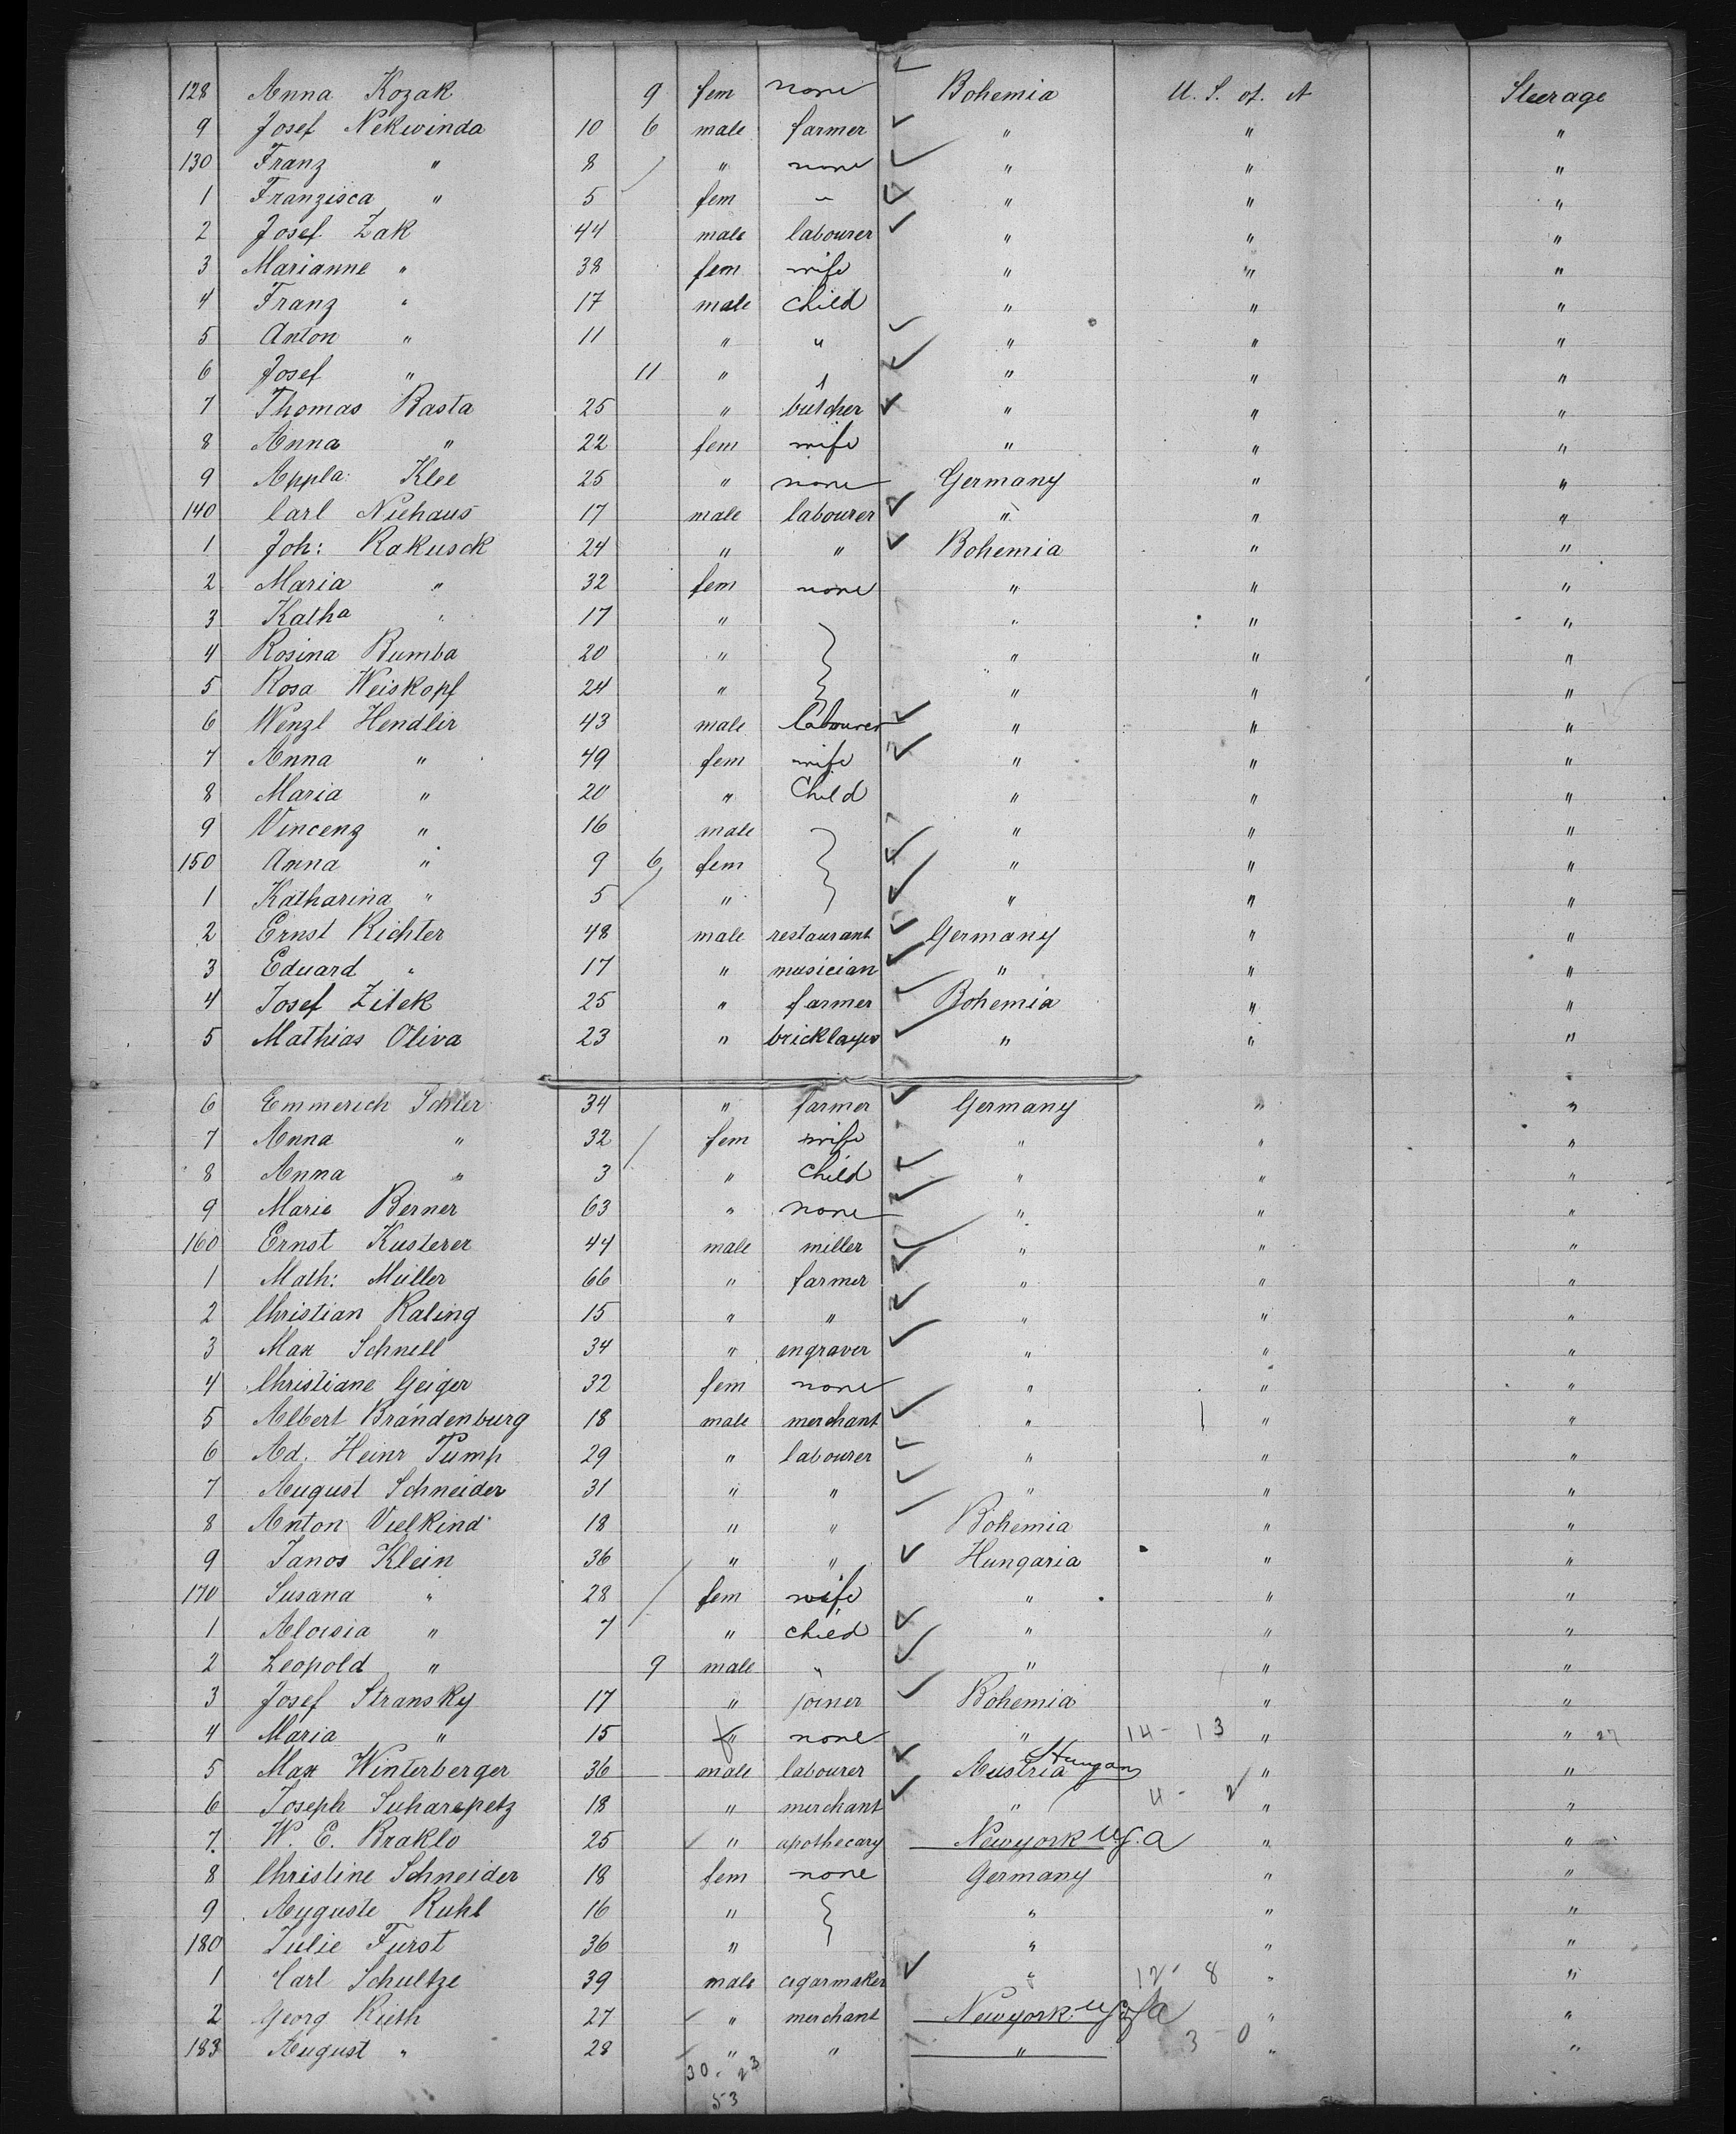 128 Anna Kozak 9 fem none Bohemia U. S. of. A Steerage
9 Josef Nekwinda 10 6 male farmer " " "
130 Franz " 8 " none " " "
1 Franzisca " 5 fem " " " "
2 Josef Zak 44 male labourer " " "
3 Marianne " 38 fem wife " " "
4 Franz " 17 male child " " "
5 Anton " 11 " " " " "
6 Josef " 11 " " " " "
7 Thomas Basta 25 " butcher " " "
8 Anna " 22 fem wife " " "
9 Appla: Klee 25 " none Germany " "
140 Carl Niehaus 17 male labourer " " "
1 Joh: Rakusck 24 " " Bohemia " "
2 Maria " 32 fem none " " "
3 Katha " 17 " " " "
4 Rosina Bumba 20 " " " "
5 Rosa Weiskopf 24 " " " "
6 Wenzl Hendlir 43 male labourer " " "
7 Anna " 49 fem wife " " "
8 Maria " 20 " Child " " "
9 Vincenz " 16 male " " "
150 Anna " 9 6 fem " " "
1 Katharina " 5 " " " "
2 Ernst Richter 48 male restaurant Germany " "
3 Eduard " 17 " musician " " "
4 Josef Zitek 25 " farmer Bohemia " "
5 Mathias Oliva 23 " bricklayer " " "
6 Emmerich 34 " farmer Germany " "
7 Anna " 32 fem wife " " "
8 Anna " 3 " child " " "
9 Marie Berner 63 " none " " "
160 Ernst Kusterer 44 male miller " " "
1 Math: Müller 66 " farmer " " "
2 Christian Raling 15 " " " " "
3 Max Schnell 34 " engraver " " "
4 Christiane Geiger 32 fem none " " "
5 Albert Brandenburg 18 male merchant " " "
6 Ad. Heinr Pump 29 " labourer " " "
7 August Schneider 31 " " " " "
8 Anton Vielkind 18 " " Bohemia " "
9 Janos Klein 36 " " Hungaria " "
170 Susana " 28 fem wife " " "
1 Aloisia " 7 " child " " "
2 Leopold " 9 male " " " "
3 Josef Stransky 17 " joiner Bohemia " "
4 Maria " 15 f none " 14 - 13 " " 27
5 Max Winterberger 36 male labourer Austria Hungary " "
6 Joseph Suharepetz 18 " merchant " 4 - 2 " "
7. W. E. Braklo 25 " apothecary Newyork U.S.a " "
8 Christine Schneider 18 fem none Germany " "
9 Auguste Ruhl 16 " " " "
180 Julie Furst 36 " " " "
1 Carl Schultze 39 male cigarmaker " 12 - 8 " "
2 Georg Rieth 27 " merchant Newyork U.S.a " "
183 August " 28 " " " 3 - 0 " "
30. 23
53